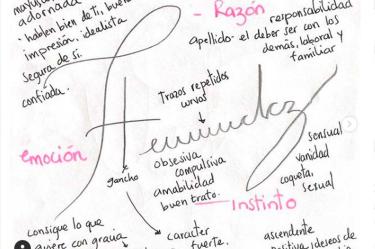 adornada
- Razón
responsabilidad
• hablen bien de ti, buena
impresión. idealista
apellido- el deber ser con los
demás, laboral y
familiar
segura de sí.
confiada.
Trazos repetidos
curvos
emoción
gancho
obsesiva
compulsiva
amabilidad
buen trato.
sensual
vanidad
coqueta,
sexual
- Instinto
consigue lo que
quiere con gracia
caracter
fuerte.
ascendente
positiva, deseos de